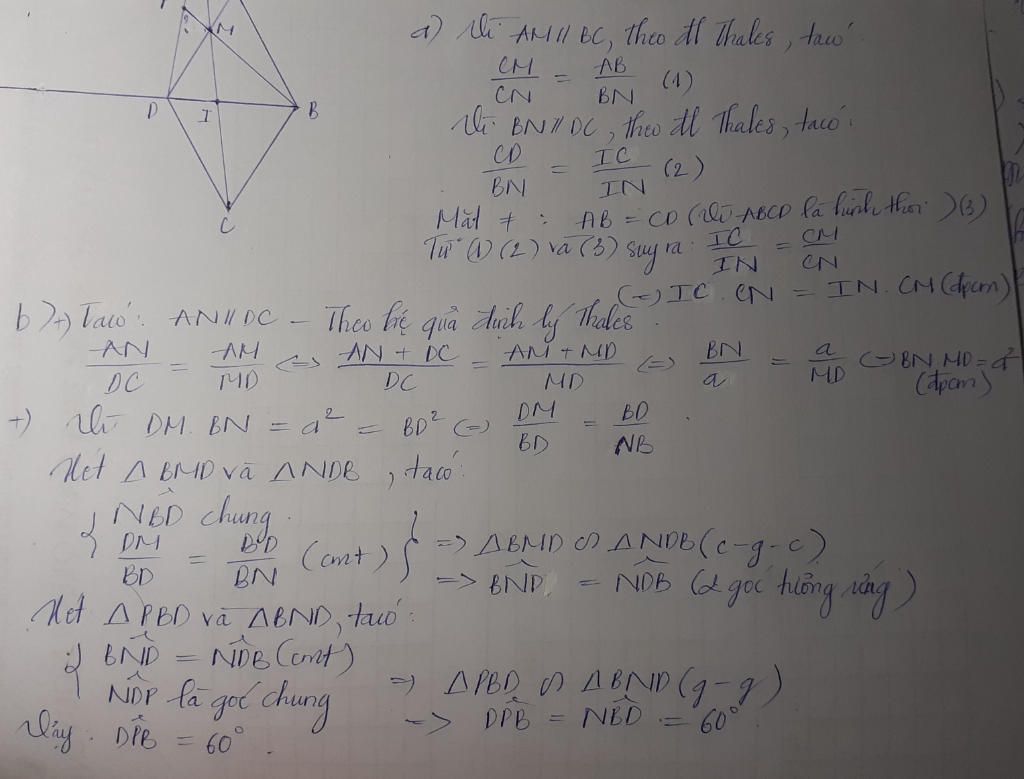 P
M
D
I
B
C
a) Vì AM // BC, theo đl Thales, ta có
CM/CN = AB/BN (1)
Vì BN // DC, theo đl Thales, ta có:
CD/BN = IC/IN (2)
Mặt ≠ : AB = CD (vì ABCD là hình thoi) (3)
Từ (1) (2) và (3) suy ra: IC/IN = CM/CN
(=) IC . CN = IN . CM (đpcm)
b) +) Ta có: AN // DC - Theo hệ quả định lý Thales.
AN/DC = AM/MD <=> (AN + DC)/DC = (AM + MD)/MD <=> BN/a = a/MD (=) BN.MD = a²
(đpcm)
+) Vì DM. BN = a² = BD² (=) DM/BD = BD/NB .
Xét Δ BMD và Δ NDB, ta có:
{ NB̂D chung.
DM/BD = BD/BN (cmt) } => ΔBMD ∽ ΔNDB (c-g-c)
=> BN̂D = ND̂B (2 góc tương ứng)
Xét Δ PBD và Δ BND, ta có:
{ BN̂D = ND̂B (cmt)
ND̂P là góc chung => ΔPBD ∽ ΔBND (g-g)
=> DP̂B = NB̂D = 60°.
Vậy: DP̂B = 60°.